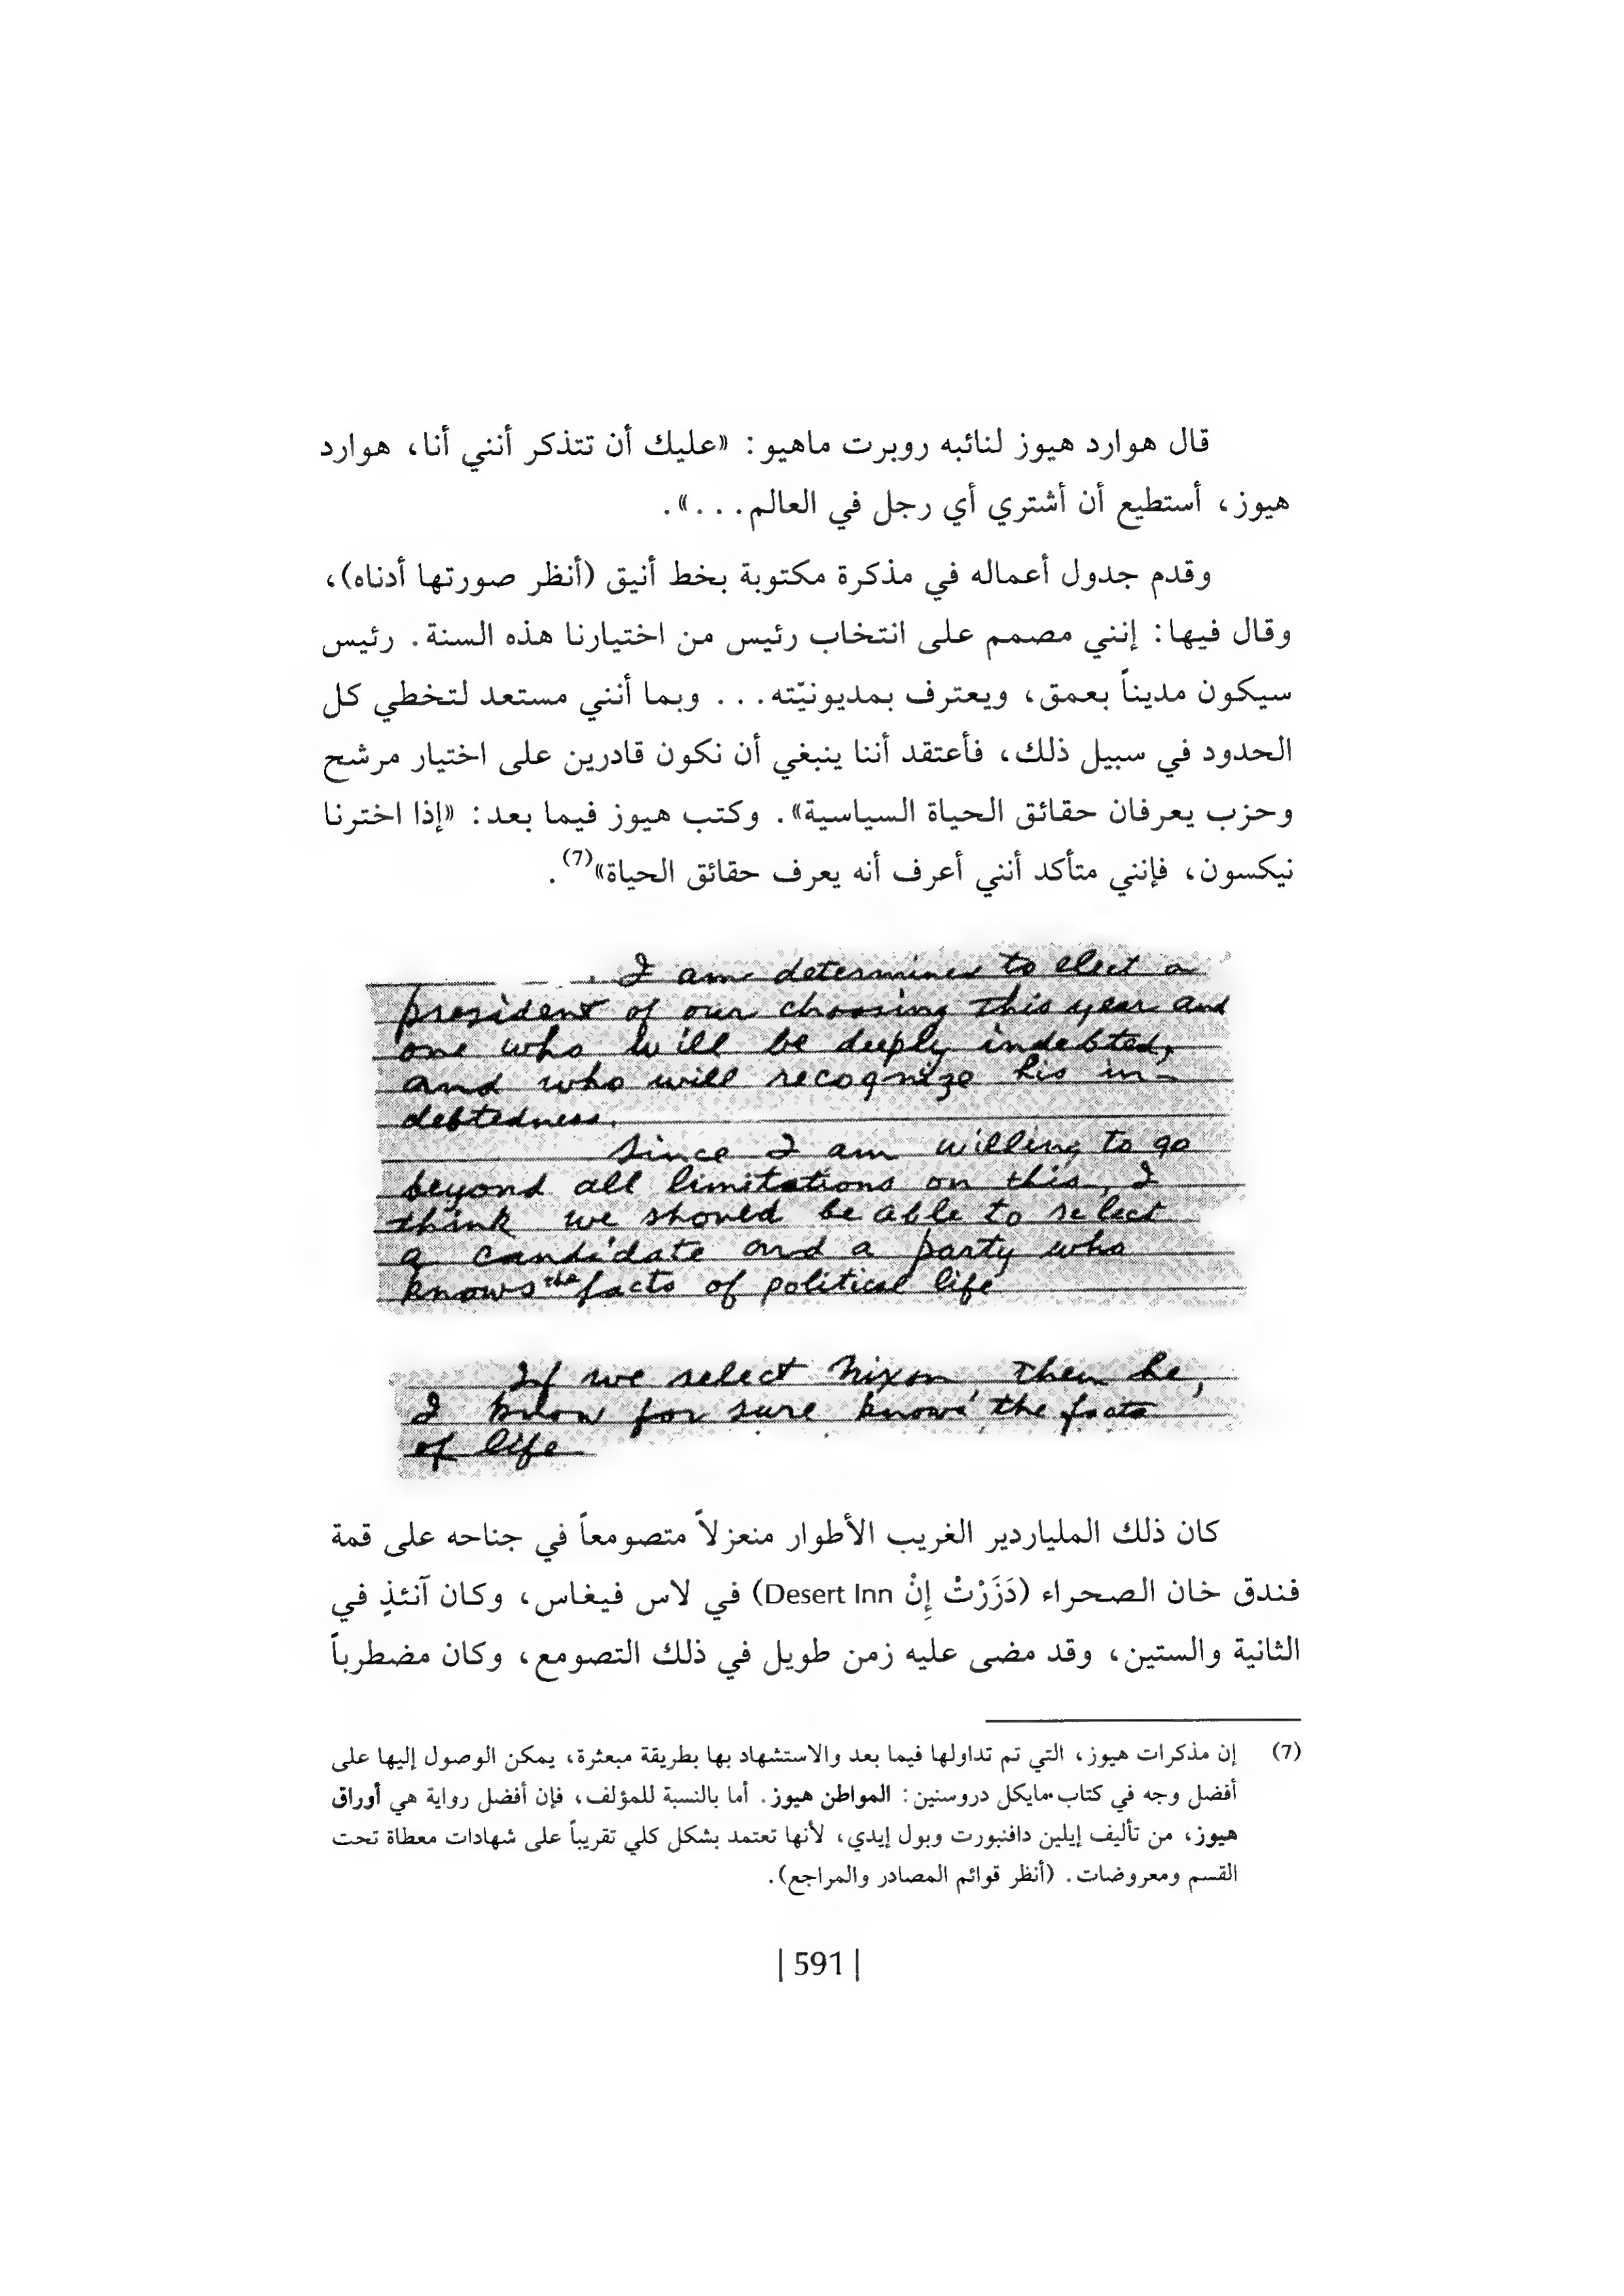 قال هوارد هيوز لنائبه روبرت ماهيو: «عليك أن تتذكر أنني أنا، هوارد
هيوز، أستطيع أن أشتري أي رجل في العالم...».
وقدم جدول أعماله في مذكرة مكتوبة بخط أنيق (أنظر صورتها أدناه)،
وقال فيها: إنني مصمم على انتخاب رئيس من اختيارنا هذه السنة. رئيس
سيكون مديناً بعمق، ويعترف بمديونيّته... وبما أنني مستعد لتخطي كل
الحدود في سبيل ذلك، فأعتقد أننا ينبغي أن نكون قادرين على اختيار مرشح
وحزب يعرفان حقائق الحياة السياسية». وكتب هيوز فيما بعد: «إذا اخترنا
نيكسون، فإنني متأكد أنني أعرف أنه يعرف حقائق الحياة»(7).
I am determined to elect a
president of our choosing this year and
one who will be deeply indebted,
and who will recognize his in-
debtedness.
Since I am willing to go
beyond all limitations on this, I
think we should be able to select
a candidate and a party who
knows the facts of political life
If we select Nixon, then he,
I know for sure knows the facts
of life
كان ذلك الملياردير الغريب الأطوار منعزلاً متصومعاً في جناحه على قمة
فندق خان الصحراء (دَزَرْتْ إِنْ Desert Inn) في لاس فيغاس، وكان آنئذٍ في
الثانية والستين، وقد مضى عليه زمن طويل في ذلك التصومع، وكان مضطرباً
(7) إن مذكرات هيوز، التي تم تداولها فيما بعد والاستشهاد بها بطريقة مبعثرة، يمكن الوصول إليها على
أفضل وجه في كتاب مايكل دروسنين: المواطن هيوز. أما بالنسبة للمؤلف، فإن أفضل رواية هي أوراق
هيوز، من تأليف إيلين دافنبورت وبول إيدي، لأنها تعتمد بشكل كلي تقريباً على شهادات معطاة تحت
القسم ومعروضات. (أنظر قوائم المصادر والمراجع).
|591|